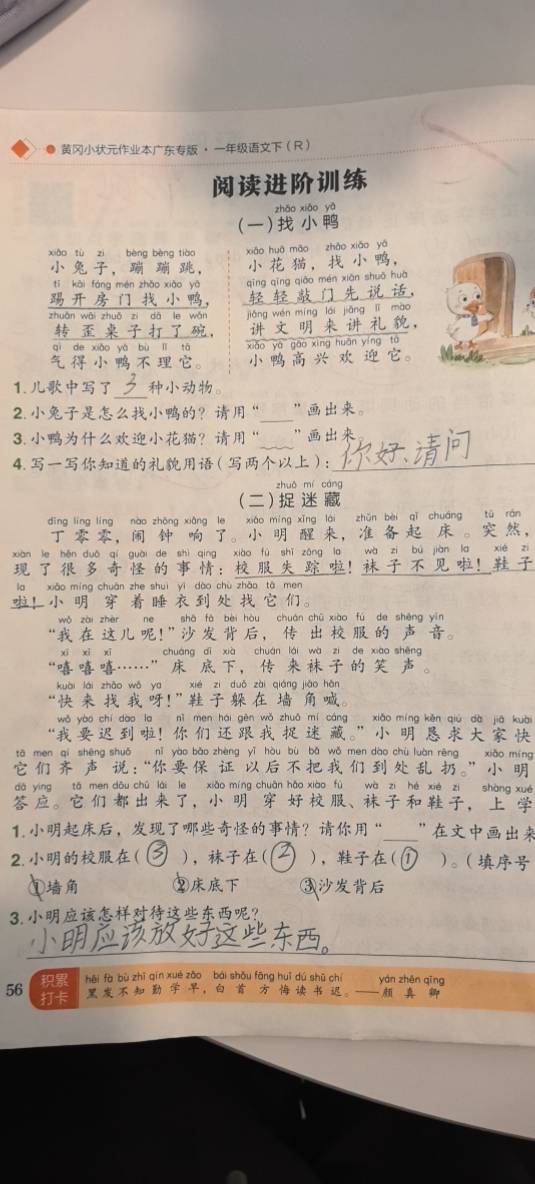 黄冈小状元作业本广东专版·一年级语文下(R)
阅读进阶训练
zhǎo xiǎo yā
(一)找小鸭
xiǎo tù zi bèng bèng tiào
小兔子,蹦蹦跳,
tī kāi fáng mén zhǎo xiǎo yā
踢开房门找小鸭,
zhuǎn wāi zhuō zi dǎ le wǎn
转歪桌子打了碗,
qì de xiǎo yā bù lǐ tā
气得小鸭不理它。
xiǎo huā māo zhǎo xiǎo yā
小花猫,找小鸭,
qīng qīng qiāo mén xiān shuō huà
轻轻敲门先说话,
jiǎng wén míng lái jiǎng lǐ mào
讲文明来讲礼貌,
xiǎo yā gāo xìng huān yíng tā
小鸭高兴欢迎它。
1.儿歌中写了 3 种小动物。
2.小兔子是怎么找小鸭的?请用“____”画出来。
3.小鸭为什么欢迎小花猫?请用“﹏﹏”画出来
4.写一写你知道的礼貌用语(写两个以上):你好、请问
zhuō mí cáng
(二)捉迷藏
dīng líng líng nào zhōng xiǎng le xiǎo míng xǐng lái zhǔn bèi qǐ chuáng tū rán
丁零零,闹钟响了。小明醒来,准备起床。突然,
xiàn le hěn duō qí guài de shì qing xiào fú shī zōng la wà zi bú jiàn la xié zi
现了很多奇怪的事情:校服失踪啦!袜子不见啦!鞋子
la xiǎo míng chuān zhe shuì yī dào chù zhǎo tā men
啦!小明穿着睡衣到处找它们。
wǒ zài zhèr ne shā fā bèi hòu chuán chū xiào fú de shēng yīn
“我在这儿呢!”沙发背后,传出校服的声音。
xī xī xī chuáng dǐ xià chuán lái wà zi de xiào shēng
“嘻嘻嘻……”床底下,传来袜子的笑声。
kuài lái zhǎo wǒ ya xié zi duǒ zài qiáng jiǎo hǎn
“快来找我呀!”鞋子躲在墙角喊。
wǒ yào chí dào la nǐ men hái gēn wǒ zhuō mí cáng xiǎo míng kěn qiú dà jiā kuài
“我要迟到啦!你们还跟我捉迷藏。”小明恳求大家快
tā men qí shēng shuō nǐ yào bǎo zhèng yǐ hòu bù bǎ wǒ men dào chù luàn rēng xiǎo míng
它们齐声说:“你要保证以后不把我们到处乱扔。”小明
dā ying tā men dōu chū lái le xiǎo míng chuān hǎo xiào fú wà zi hé xié zi shàng xué
答应。它们都出来了,小明穿好校服、袜子和鞋子,上学
1.小明起床后,发现了哪些奇怪的事情?请你用“____”在文中画出来
2.小明的校服在( ③ ),袜子在( ② ),鞋子在( ① )。(填序号
①墙角 ②床底下 ③沙发背后
3.小明应该怎样对待这些东西呢?
小明应该放好这些东西。
56 积累打卡
hēi fà bù zhī qín xué zǎo bái shǒu fāng huǐ dú shū chí yán zhēn qīng
黑发不知勤学早,白首方悔读书迟。——颜真卿